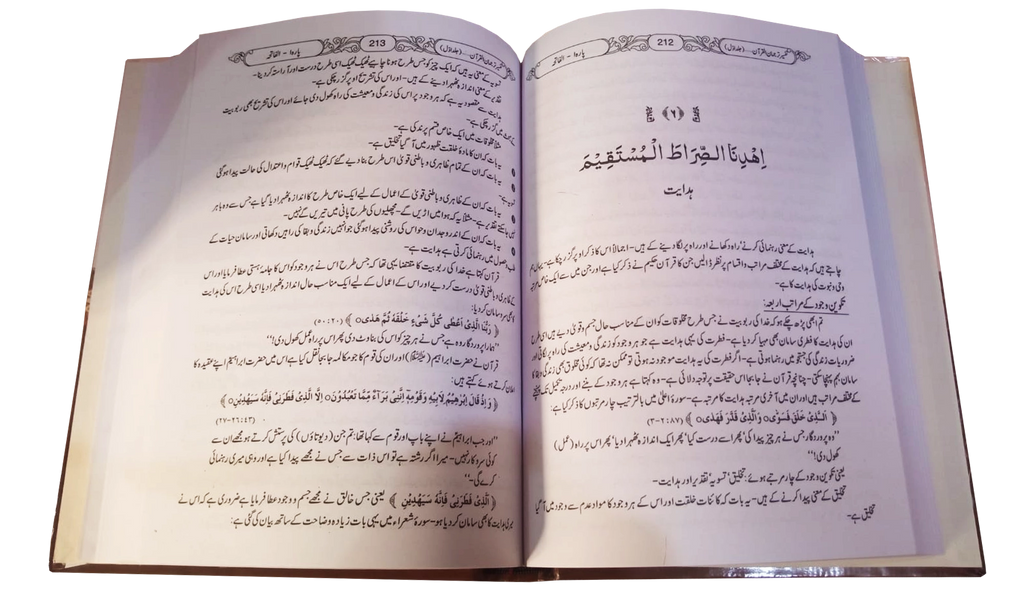 تفسیر ترجمان القرآن... (جلد اوّل)
212
پارہ ۱ - الفاتحہ
﴿۶﴾
اِهْدِنَا الصِّرَاطَ الْمُسْتَقِيْمَ
ہدایت
ہدایت کے معنی رہنمائی کرنے' راہ دکھانے اور راہ پر لگا دینے کے ہیں۔ اجمالاً اس کا ذکر اوپر گزر چکا ہے۔ یہاں ہم
چاہتے ہیں کہ ہدایت کے مختلف مراتب و اقسام پر نظر ڈالیں جن کا قرآن حکیم نے ذکر کیا ہے اور جن میں سے ایک خاص مرتبہ
وحی و نبوت کی ہدایت کا ہے۔
تکوین وجود کے مراتب اربعہ:
تم ابھی پڑھ چکے ہو کہ خدا کی ربوبیت نے جس طرح مخلوقات کو ان کے مناسب حال جسم و قویٰ دیے ہیں اسی طرح
ان کی ہدایت کا فطری سامان بھی مہیا کر دیا ہے۔ فطرت کی یہی ہدایت ہے جو ہر وجود کو زندگی و معیشت کی راہ پر لگاتی اور
ضروریات زندگی کی جستجو میں رہنما ہوتی ہے۔ اگر فطرت کی یہ ہدایت موجود نہ ہوتی تو ممکن نہ تھا کہ کوئی مخلوق بھی زندگی و بقا کا
سامان بہم پہنچا سکتی۔ چنانچہ قرآن نے جابجا اس حقیقت پر توجہ دلائی ہے۔ وہ کہتا ہے ہر وجود کے بننے اور درجہ تکمیل تک پہنچنے
کے مختلف مراتب ہیں اور ان میں آخری مرتبہ ہدایت کا مرتبہ ہے۔ سورۂ اعلیٰ میں بالترتیب چار مرتبوں کا ذکر کیا ہے:
﴿ اَلَّذِيْ خَلَقَ فَسَوّٰى○ وَالَّذِيْ قَدَّرَ فَهَدٰى○ ﴾ (۸۷:۲-۳)
"وہ پروردگار جس نے ہر چیز پیدا کی' پھر اسے درست کیا' پھر ایک اندازہ ٹھہرا دیا' پھر اس پر راہ (عمل)
کھول دی!"
یعنی تکوین وجود کے چار مرتبے ہوئے: تخلیق' تسویہ' تقدیر اور ہدایت۔
تخلیق کے معنی پیدا کرنے کے ہیں۔ یہ بات کہ کائنات خلقت اور اس کے ہر وجود کا مواد عدم سے وجود میں آ گیا
تخلیق ہے۔
تفسیر ترجمان القرآن... (جلد اوّل)
213
پارہ ۱ - الفاتحہ
تسویہ کے معنی یہ ہیں کہ ایک چیز کو جس طرح ہونا چاہیے ٹھیک ٹھیک اسی طرح درست اور آراستہ کر دینا۔
تقدیر کے معنی اندازہ ٹھہرا دینے کے ہیں۔ اور اس کی تشریح اوپر گزر چکی ہے۔
ہدایت سے مقصود یہ ہے کہ ہر وجود پر اس کی زندگی و معیشت کی راہ کھول دی جائے اور اس کی تشریح بھی ربوبیت
کے مبحث میں گزر چکی ہے۔
مثلاً مخلوقات میں ایک خاص قسم پرند کی ہے۔
یہ بات کہ ان کا مادۂ خلقت ظہور میں آ گیا تخلیق ہے۔
یہ بات کہ ان کے تمام ظاہری و باطنی قویٰ اس طرح بنا دیے گئے کہ ٹھیک ٹھیک قوام و اعتدال کی حالت پیدا ہو گئی
تسویہ ہے۔
یہ بات کہ ان کے ظاہری و باطنی قویٰ کے اعمال کے لیے ایک خاص طرح کا اندازہ ٹھہرا دیا گیا ہے جس سے وہ باہر
نہیں جا سکتے تقدیر ہے۔ مثلاً یہ کہ ہوا میں اڑیں گے۔ مچھلیوں کی طرح پانی میں تیریں گے نہیں۔
یہ بات کہ ان کے اندر وجدان و حواس کی روشنی پیدا ہو گئی جو انہیں زندگی و بقا کی راہیں دکھاتی اور سامان حیات کے
طلب و حصول میں رہنمائی کرتی ہے ہدایت ہے۔
قرآن کہتا ہے خدا کی ربوبیت کا مقتضا یہی تھا کہ جس طرح اس نے ہر وجود کو اس کا جامۂ ہستی عطا فرمایا اور اس
کے ظاہری و باطنی قویٰ درست کر دیے اور اس کے اعمال کے لیے ایک مناسب حال اندازہ ٹھہرا دیا اسی طرح اس کی ہدایت
کا بھی سروسامان کر دیا:
﴿ رَبُّنَا الَّذِيْ اَعْطٰى كُلَّ شَيْءٍ خَلْقَهٗ ثُمَّ هَدٰى○ ﴾ (۲۰:۵۰)
"ہمارا پروردگار وہ ہے جس نے ہر چیز کو اس کی بناوٹ دی پھر اس پر راہِ عمل کھول دی!"
قرآن نے حضرت ابراہیم (علیہ السلام) اور ان کی قوم کا جو مکالمہ جابجا نقل کیا ہے اس میں حضرت ابراہیم اپنے عقیدہ کا
اعلان کرتے ہوئے کہتے ہیں:
﴿ وَاِذْ قَالَ اِبْرٰهِيْمُ لِاَبِيْهِ وَقَوْمِهٖٓ اِنَّنِيْ بَرَآءٌ مِّمَّا تَعْبُدُوْنَ○ اِلَّا الَّذِيْ فَطَرَنِيْ فَاِنَّهٗ سَيَهْدِيْنِ○ ﴾
(۴۳:۲۶-۲۷)
"اور جب ابراہیم نے اپنے باپ اور قوم سے کہا تھا: تم جن (دیوتاؤں) کی پرستش کرتے ہو مجھے ان سے
کوئی سروکار نہیں۔ میرا اگر رشتہ ہے تو اس ذات سے جس نے مجھے پیدا کیا ہے اور وہی میری رہنمائی
کرے گی۔"
﴿ الَّذِيْ فَطَرَنِيْ فَاِنَّهٗ سَيَهْدِيْنِ ﴾ یعنی جس خالق نے مجھے جسم و وجود عطا فرمایا ہے ضروری ہے کہ اس نے
میری ہدایت کا بھی سامان کر دیا ہو۔ سورۂ شعراء میں یہی بات زیادہ وضاحت کے ساتھ بیان کی گئی ہے: